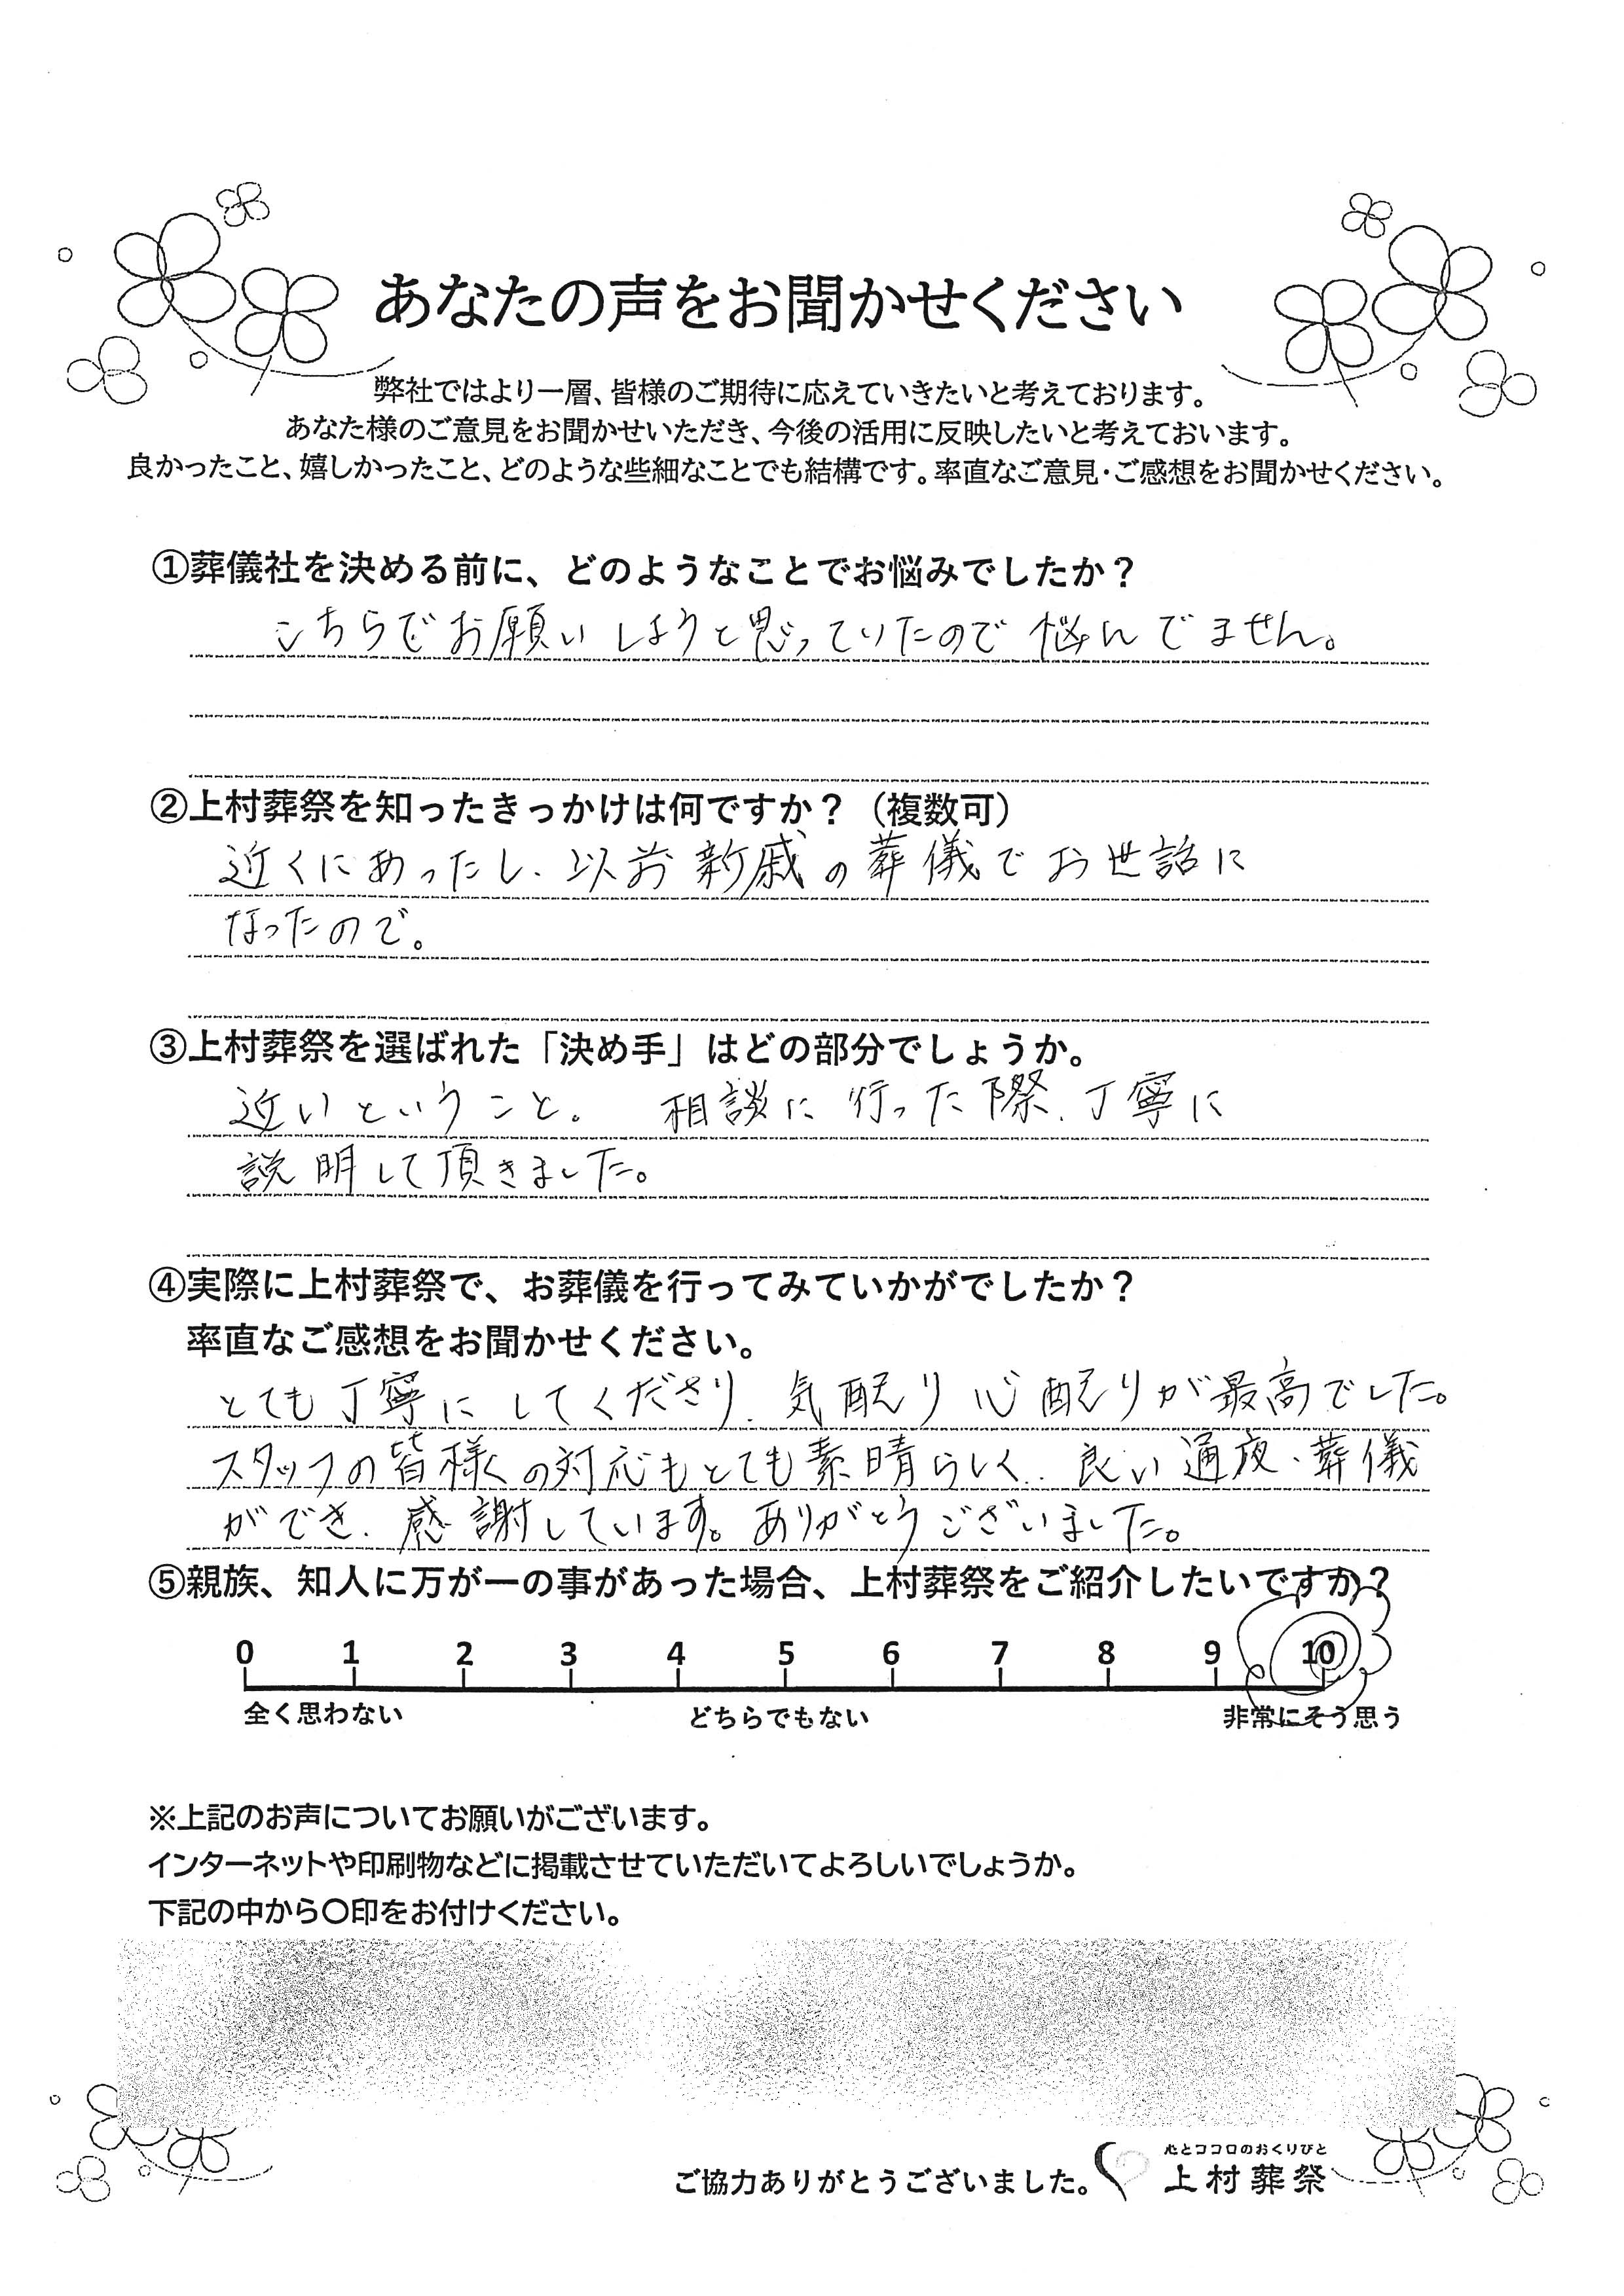 あなたの声をお聞かせください
弊社ではより一層、皆様のご期待に応えていきたいと考えております。
あなた様のご意見をお聞かせいただき、今後の活用に反映したいと考えておいます。
良かったこと、嬉しかったこと、どのような些細なことでも結構です。率直なご意見・ご感想をお聞かせください。
①葬儀社を決める前に、どのようなことでお悩みでしたか？
こちらでお願いしようと思っていたので悩んでません。
②上村葬祭を知ったきっかけは何ですか？（複数可）
近くにあったし、以前親戚の葬儀でお世話に
なったので。
③上村葬祭を選ばれた「決め手」はどの部分でしょうか。
近いということ。 相談に行った際、丁寧に
説明して頂きました。
④実際に上村葬祭で、お葬儀を行ってみていかがでしたか？
率直なご感想をお聞かせください。
とても丁寧にしてくださり、気配り心配りが最高でした。
スタッフの皆様の対応もとても素晴らしく、良い通夜・葬儀
ができ、感謝しています。ありがとうございました。
⑤親族、知人に万が一の事があった場合、上村葬祭をご紹介したいですか？
0 1 2 3 4 5 6 7 8 9 10
全く思わない どちらでもない 非常にそう思う
※上記のお声についてお願いがございます。
インターネットや印刷物などに掲載させていただいてよろしいでしょうか。
下記の中から〇印をお付けください。
心とココロのおくりびと
ご協力ありがとうございました。 上村葬祭